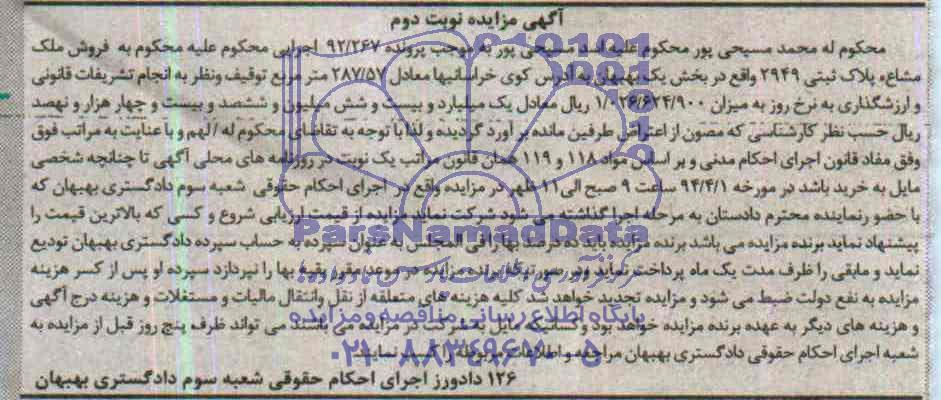 آگهی مزایده نوبت دوم
محکوم له محمد مسیحی پور محکوم علیه اسد مسیحی پور به موجب پرونده ۹۲/۲۶۷ اجرایی محکوم علیه محکوم به فروش ملک
مشاع، پلاک ثبتی ۲۹۴۹ واقع در بخش یک بهبهان به آدرس کوی خراسانیها معادل ۲۸۷/۵۷ متر مربع توقیف ونظر به انجام تشریفات قانونی
و ارزشگذاری به نرخ روز به میزان ۱/۰۲۶/۶۲۴/۹۰۰ ریال معادل یک میلیارد و بیست و شش میلیون و ششصد و بیست و چهار هزار و نهصد
ریال حسب نظر کارشناسی که مصون از اعتراض طرفین مانده بر آورد گردیده و لذا با توجه به تقاضای محکوم له / لهم و با عنایت به مراتب فوق
وفق مفاد قانون اجرای احکام مدنی و بر اساس مواد ۱۱۸ و ۱۱۹ همان قانون مراتب یک نوبت در روزنامه های محلی آگهی تا چنانچه شخصی
مایل به خرید باشد در مورخه ۹۴/۴/۱ ساعت ۹ صبح الی ۱۱ ظهر در مزایده واقع در اجرای احکام حقوقی شعبه سوم دادگستری بهبهان که
با حضور نماینده محترم دادستان به مرحله اجرا گذاشته می شود شرکت نماید مزایده از قیمت ارزیابی شروع و کسی که بالاترین قیمت را
پیشنهاد نماید برنده مزایده می باشد برنده مزایده باید ده درصد بها را فی المجلس به عنوان سپرده به حساب سپرده دادگستری بهبهان تودیع
نماید و مابقی را ظرف مدت یک ماه پرداخت نماید ودر صورتیکه برنده مزایده در موعد مقرر بقیه بها را نپردازد سپرده او پس از کسر هزینه
مزایده به نفع دولت ضبط می شود و مزایده تجدید خواهد شد کلیه هزینه های متعلقه از نقل وانتقال مالیات و مستغلات و هزینه درج آگهی
و هزینه های دیگر به عهده برنده مزایده خواهد بود وکسانیکه مایل به شرکت در مزایده می باشند می تواند ظرف پنج روز قبل از مزایده به
شعبه اجرای احکام حقوقی دادگستری بهبهان مراجعه و اطلاعات مربوطه را کسب نمایند
۱۲۶ دادورز اجرای احکام حقوقی شعبه سوم دادگستری بهبهان
ParsNamadData
پایگاه اطلاع رسانی مناقصه و مزایده
۰۲۱-۸۸۳۴۹۶۷۰-۵